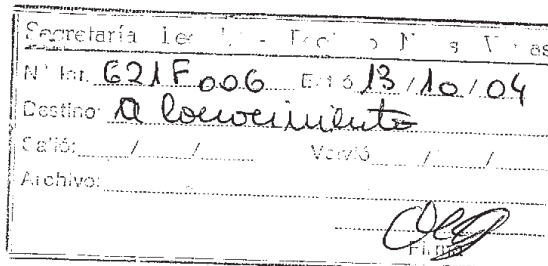 Secretaría
Nº Int. 621F006 Entró 13/10/04
Destino: A Conocimiento
Salió: / / Volvió / /
Archivo:
Firma